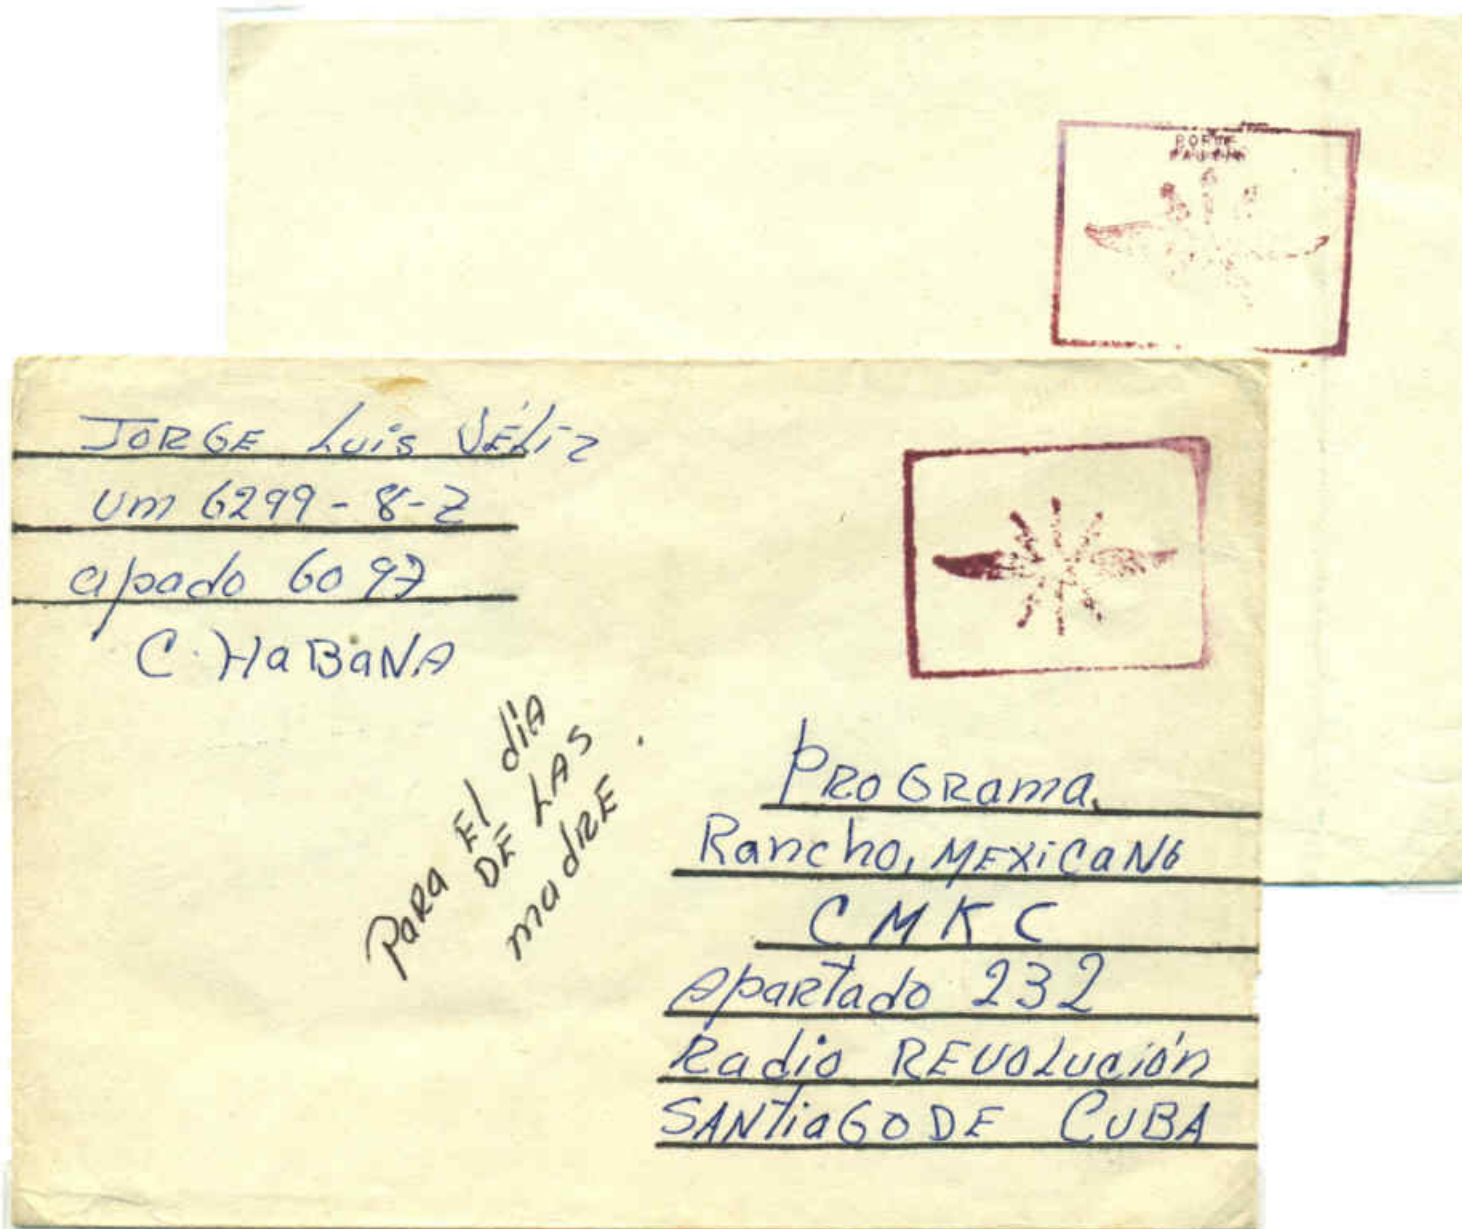 PORTE
PAGADO
JORGE Luis VÉLIZ
Um 6299-8-2
apado 6097
C. HaBaNA
PaRa El dia
DE LAS
madRE.
PROGRama.
Rancho, MEXiCaNo
CMKC
Apartado 232
Radio REVOLución
SANTiaGO DE CUBA